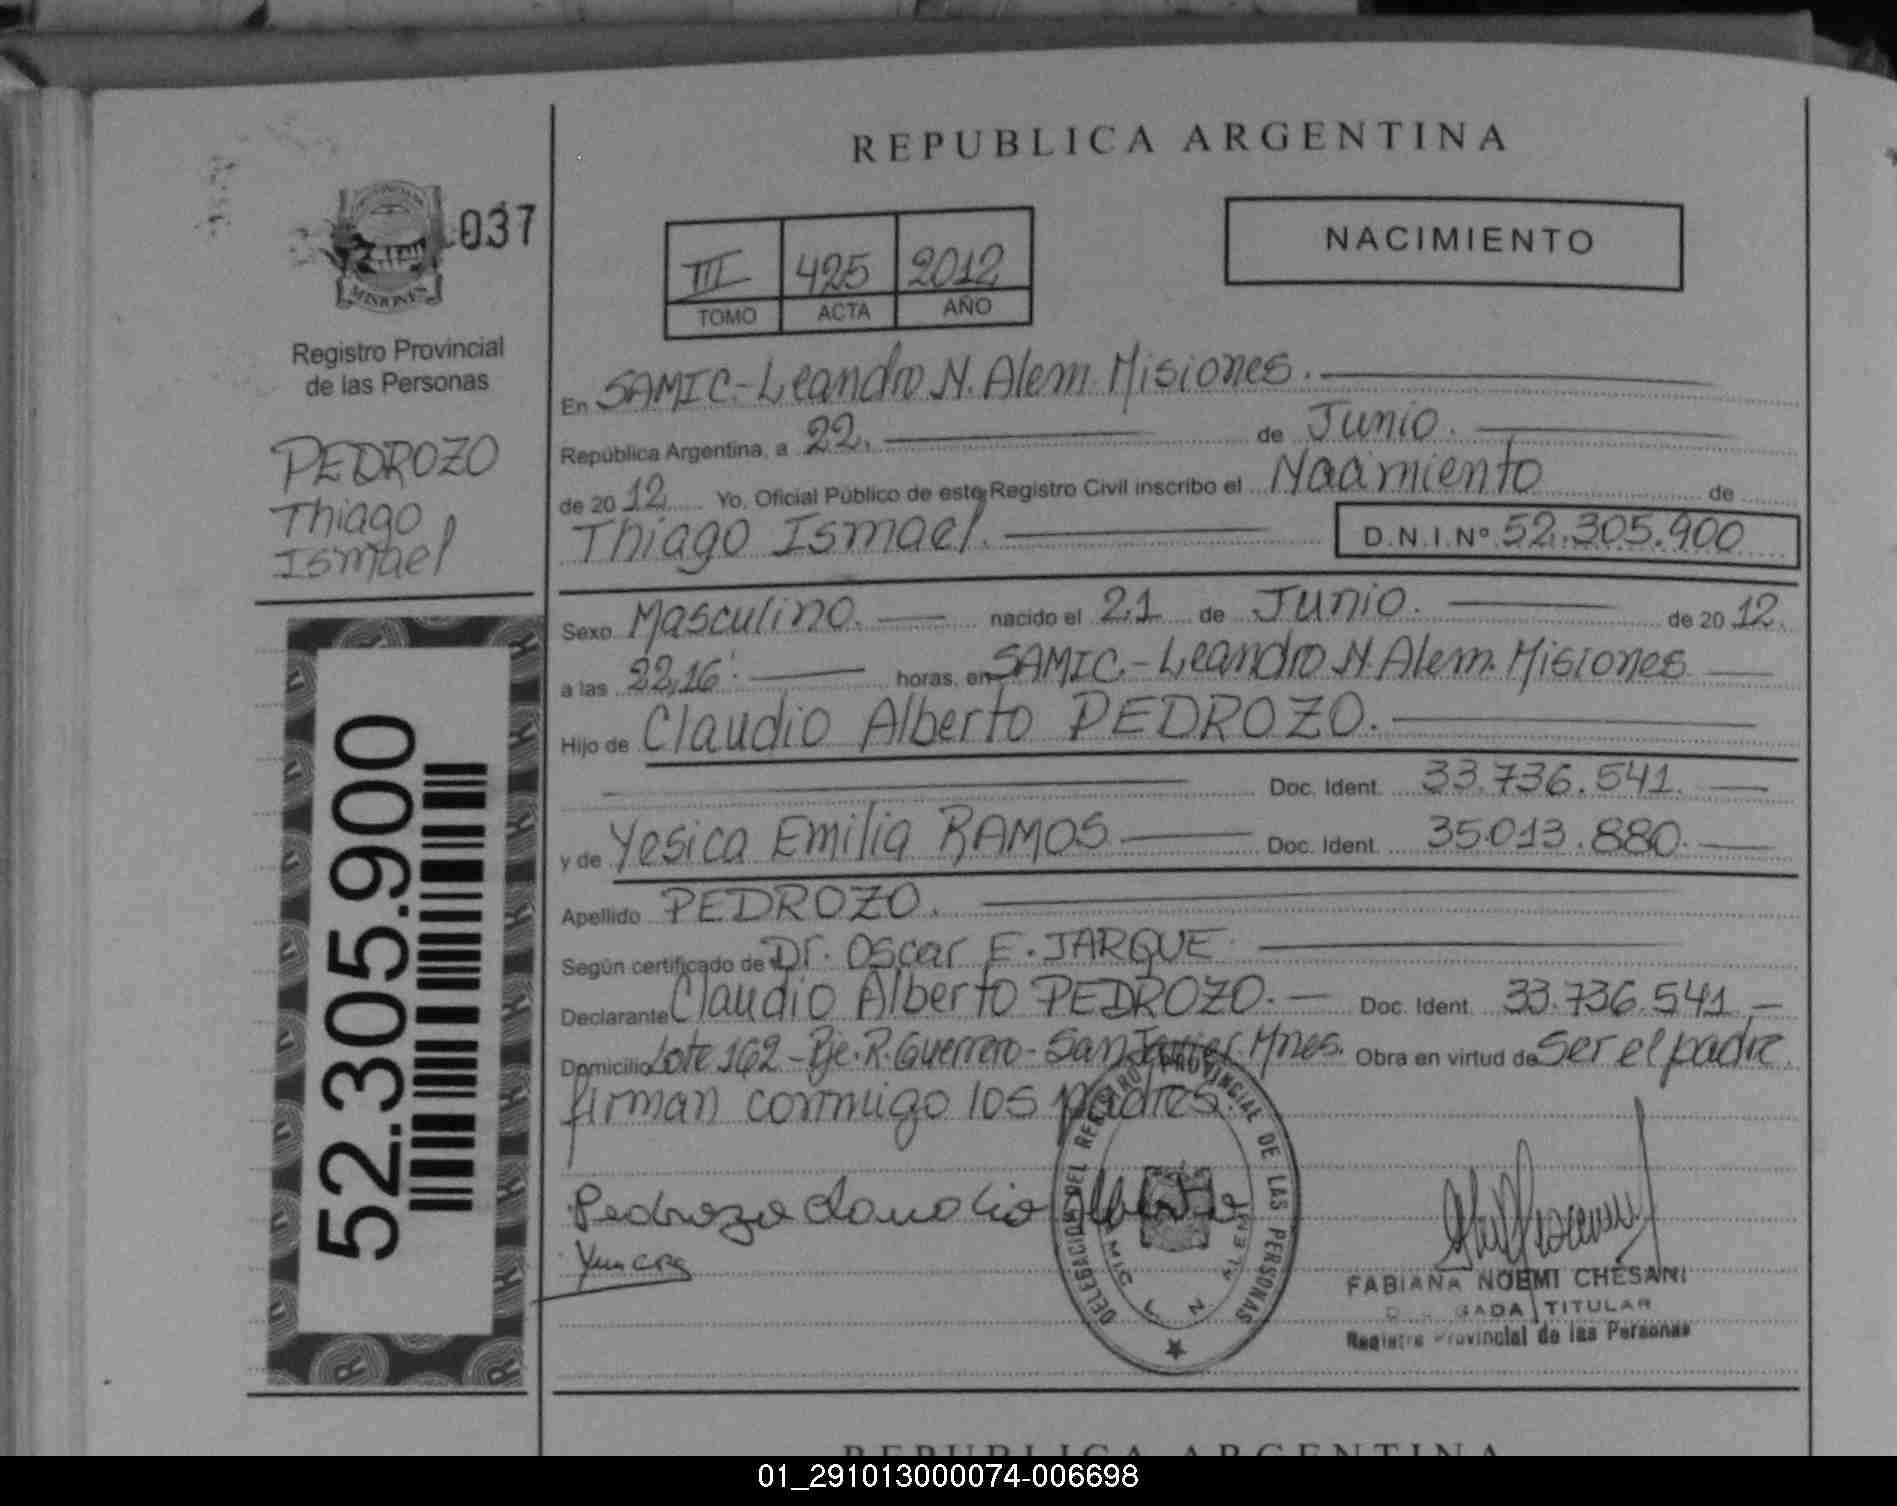 REPUBLICA ARGENTINA
037
MISIONES
Registro Provincial
de las Personas
PEDROZO
Thiago
Ismael
52.305.900
NACIMIENTO
III 425 2012
TOMO ACTA AÑO
En SAMIC.-Leandro N. Alem. Misiones.
República Argentina, a 22. de Junio.
de 20 12 Yo, Oficial Público de este Registro Civil inscribo el Nacimiento de
Thiago Ismael. D.N.I.Nº 52.305.900
Sexo Masculino. nacido el 21 de Junio. de 20 12.
a las 22,16 horas, en SAMIC.-Leandro N. Alem. Misiones
Hijo de Claudio Alberto PEDROZO.
Doc. Ident. 33.736.541.
y de Yesica Emilia RAMOS Doc. Ident. 35.013.880.
Apellido PEDROZO.
Según certificado de Dr. Oscar E. JARQUE.
Declarante Claudio Alberto PEDROZO. Doc. Ident. 33.736.541
Domicilio Lote 162-Pje.R.Guerrero-San Javier.Mnes. Obra en virtud de Ser el padre.
firman conmigo los padres.
DELEGACION DEL REGISTRO PROVINCIAL DE LAS PERSONAS
L N ALEM
Pedrozo Claudio Alberto
FABIANA NOEMI CHESANI
TITULAR
Registro Provincial de las Personas
REPUBLICA ARGENTINA
01_291013000074-006698